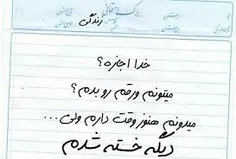 برگه امتحانی
زندگی
خدا اجازه؟
میتونم ورقم رو بدم؟
میدونم هنوز وقت دارم ولی...
دیگه خسته شدم